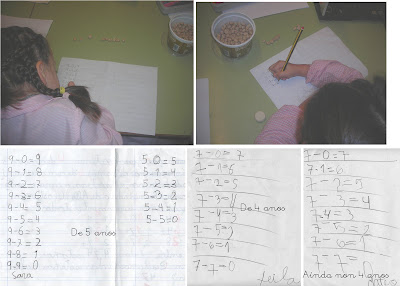 9-0=9
9-1=8
9-2=7
9-3=6
9-4=5
9-5=4
9-6=3
9-7=2
9-8=1
9-9=0
Sara
5-0=5
5-1=4
5-2=3
5-3=2
5-4=1
5-5=0
De 5 anos
7-0=7
7-1=6
7-2=5
7-3=4
7-4=3
7-5=2
7-6=1
7-7=0
De 4 anos
Leila
7-0=7
7-1=6
7-2=5
7-3=4
7-4=3
7-5=2
7-6=1
7-7=0
Ainda non 4 anos